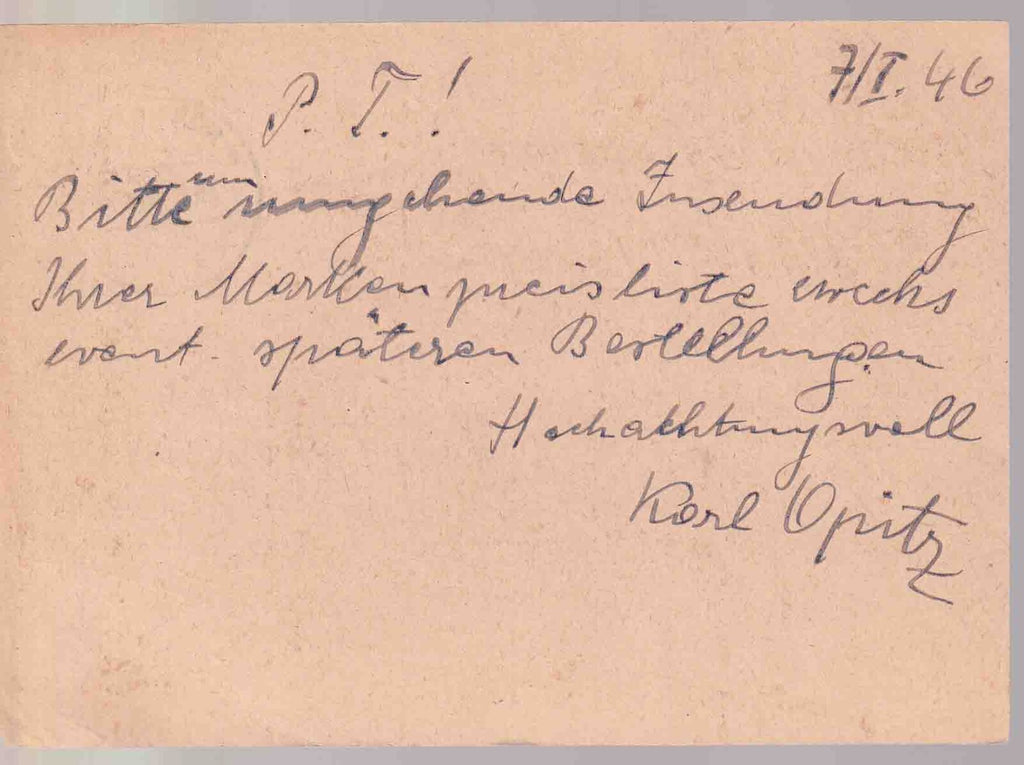 7/I. 46
P. T. !
Bitte um umgehende Zusendung
Ihrer Markenpreisliste zwecks
event. späteren Bestellungen
Hochachtungsvoll
Karl Opitz